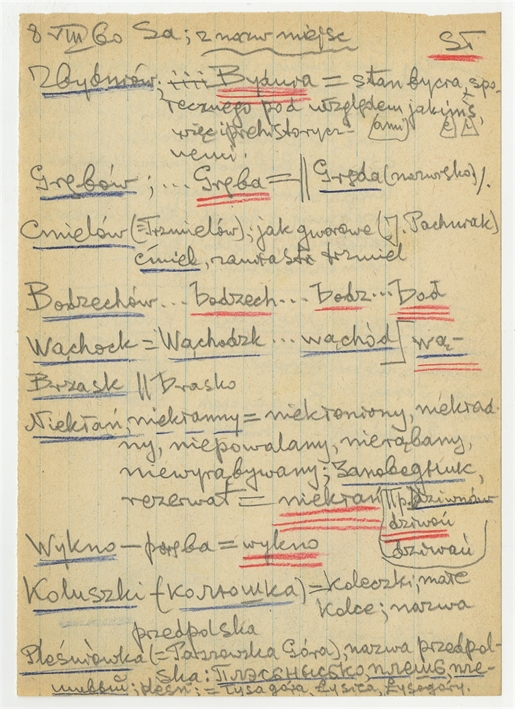 8 VIII 60 Sa; z nazw miejsc
SŁ
Zbydniów; iii Bydura = stan bycia, spo-
recznego pod względem jakimś,
więc i prehistorycz- (ami)
nemi.
Grębów; ... Gręba = || Gręda (nazwisko)/.
Ćmielów (= Trzmielów); jak gwarowe (J. Pachurak)
ćmiel, zamiast trzmiel
Bodzechów ... bodzech ... bodz ... bod
Wąchock = Wąchodzk ... wąchód] wą-
Brzask || brasko
Niekłań, niekłanny = niekłoniony, niekład-
ny, niepowalany, nierąbany,
niewyrąbywany; Заповедник,
rezerwat = niekłan || p. Dziwnów
dziwoń
dziwań
Wykno – poręba = wykno
Koluszki – (колюшка) = Koleczki; małe
Kolce; nazwa
przedpolska
Pleśniówka (= Patrzowska Góra); nazwa przedpol-
ska: плешь, пле-
= Łysa góra, Łysica, Łysogóry.